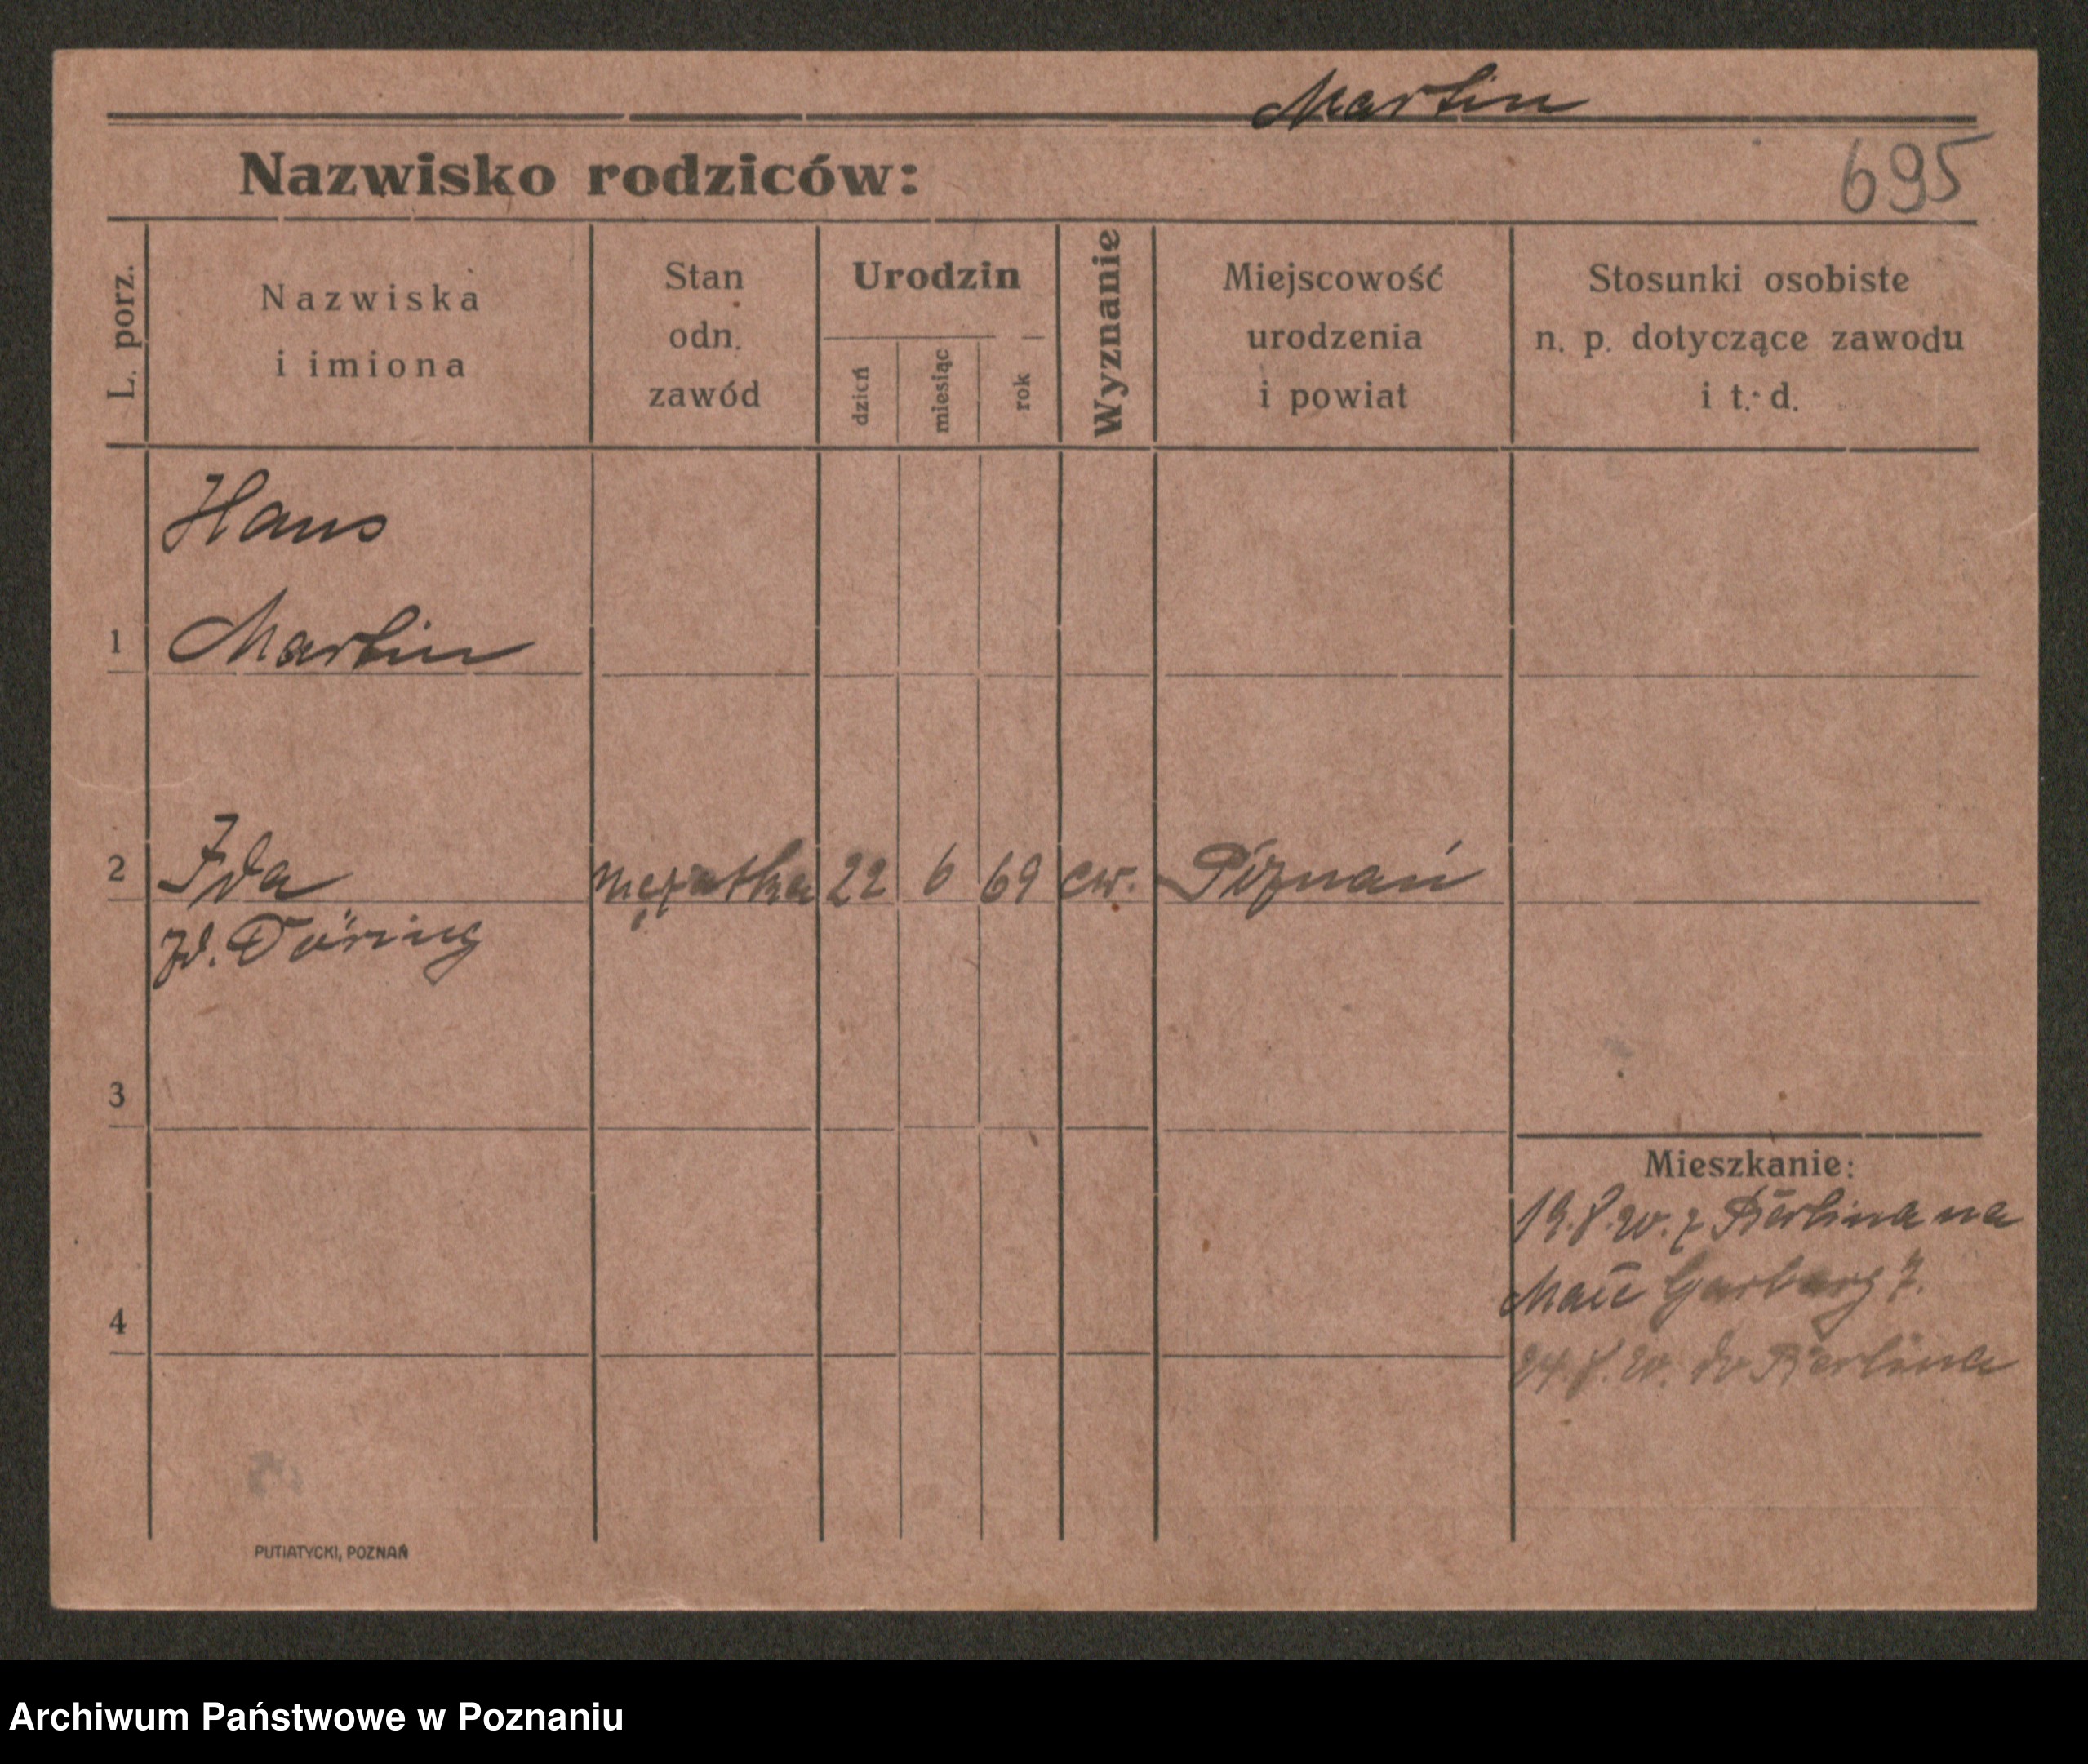 Martin
Nazwisko rodziców:
695
L. porz.
Nazwiska
i imiona
Stan
odn.
zawód
Urodzin
dzień
miesiąc
rok
Wyznanie
Miejscowość
urodzenia
i powiat
Stosunki osobiste
n. p. dotyczące zawodu
i t. d.
Hans
1 Martin
2 Ida mężatka 22 6 69 ew. Poznań
zd. Döring
3
4
Mieszkanie:
19.8.20. z Berlina na
Małe Garbary 7.
24.8.20. do Berlina
PUTIATYCKI, POZNAŃ
Archiwum Państwowe w Poznaniu